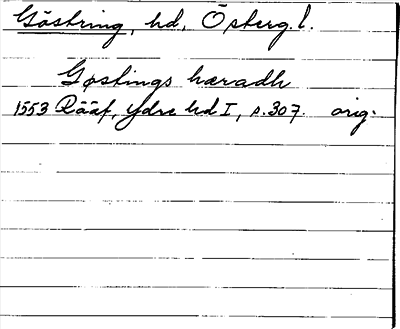 Göstring, hd, Österg. l.
Gøstings hæradh
1553 Rääf, Ydre hd I, s. 307. orig.